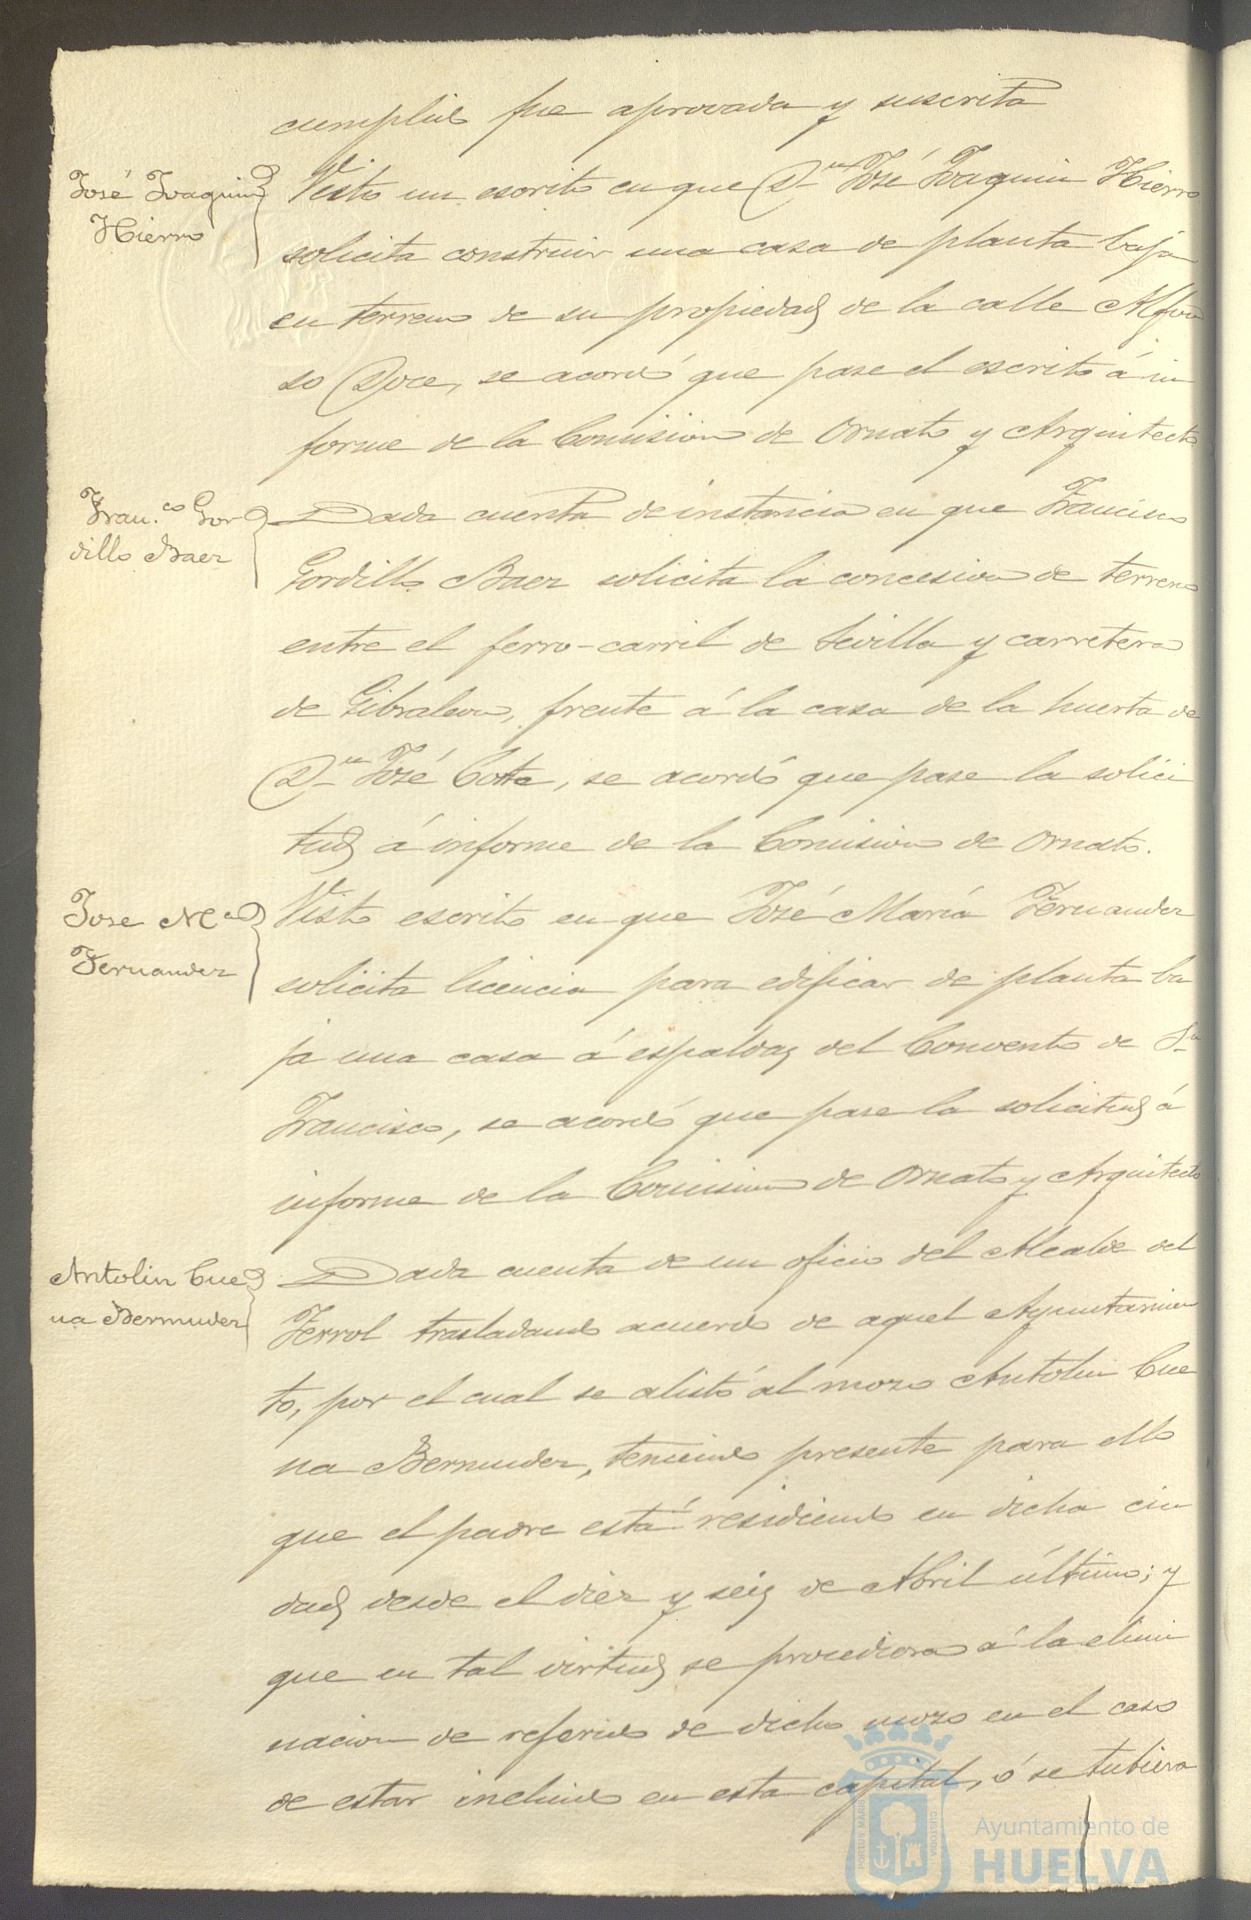 cumplido fue aprovada y suscrita
José Joaquin
Hierro
Visto un escrito en que Dn José Joaquin Hierro
solicita construir una casa de planta baja
en terreno de su propiedad de la calle Alfon
so Doce, se acordó que pase el escrito á in
forme de la Comision de Ornato y Arquitecto
Fran.co Gor
dillo Baez
Dada cuenta de instancia en que Francisco
Gordillo Baez solicita la concesion de terreno
entre el ferro-carril de Sevilla y carretera
de Gibraleon, frente á la casa de la huerta de
Dn José Cotte, se acordó que pase la solici
tud á informe de la Comision de Ornato.
Jose Ma
Fernandez
Visto escrito en que José María Fernandez
solicita licencia para edificar de planta ba
ja una casa á espaldas del Convento de Sn
Francisco, se acordó que pase la solicitud á
informe de la Comision de Ornato y Arquitecto
Antolin Cue
na Bermudez
Dada cuenta de un oficio del Alcalde del
Ferrol trasladando acuerdo de aquel Ayuntamien
to, por el cual se alistó al mozo Antolin Cue
na Bermudez, teniendo presente para ello
que el padre está residiendo en dicha ciu
dad desde el diez y seis de Abril último; y
que en tal virtud se procediera á la elimi
nacion de referido de dicho mozo en el caso
de estar incluido en esta capital, ó se tubiera
PORTUS MARIS
CUSTODIA
Ayuntamiento de
HUELVA